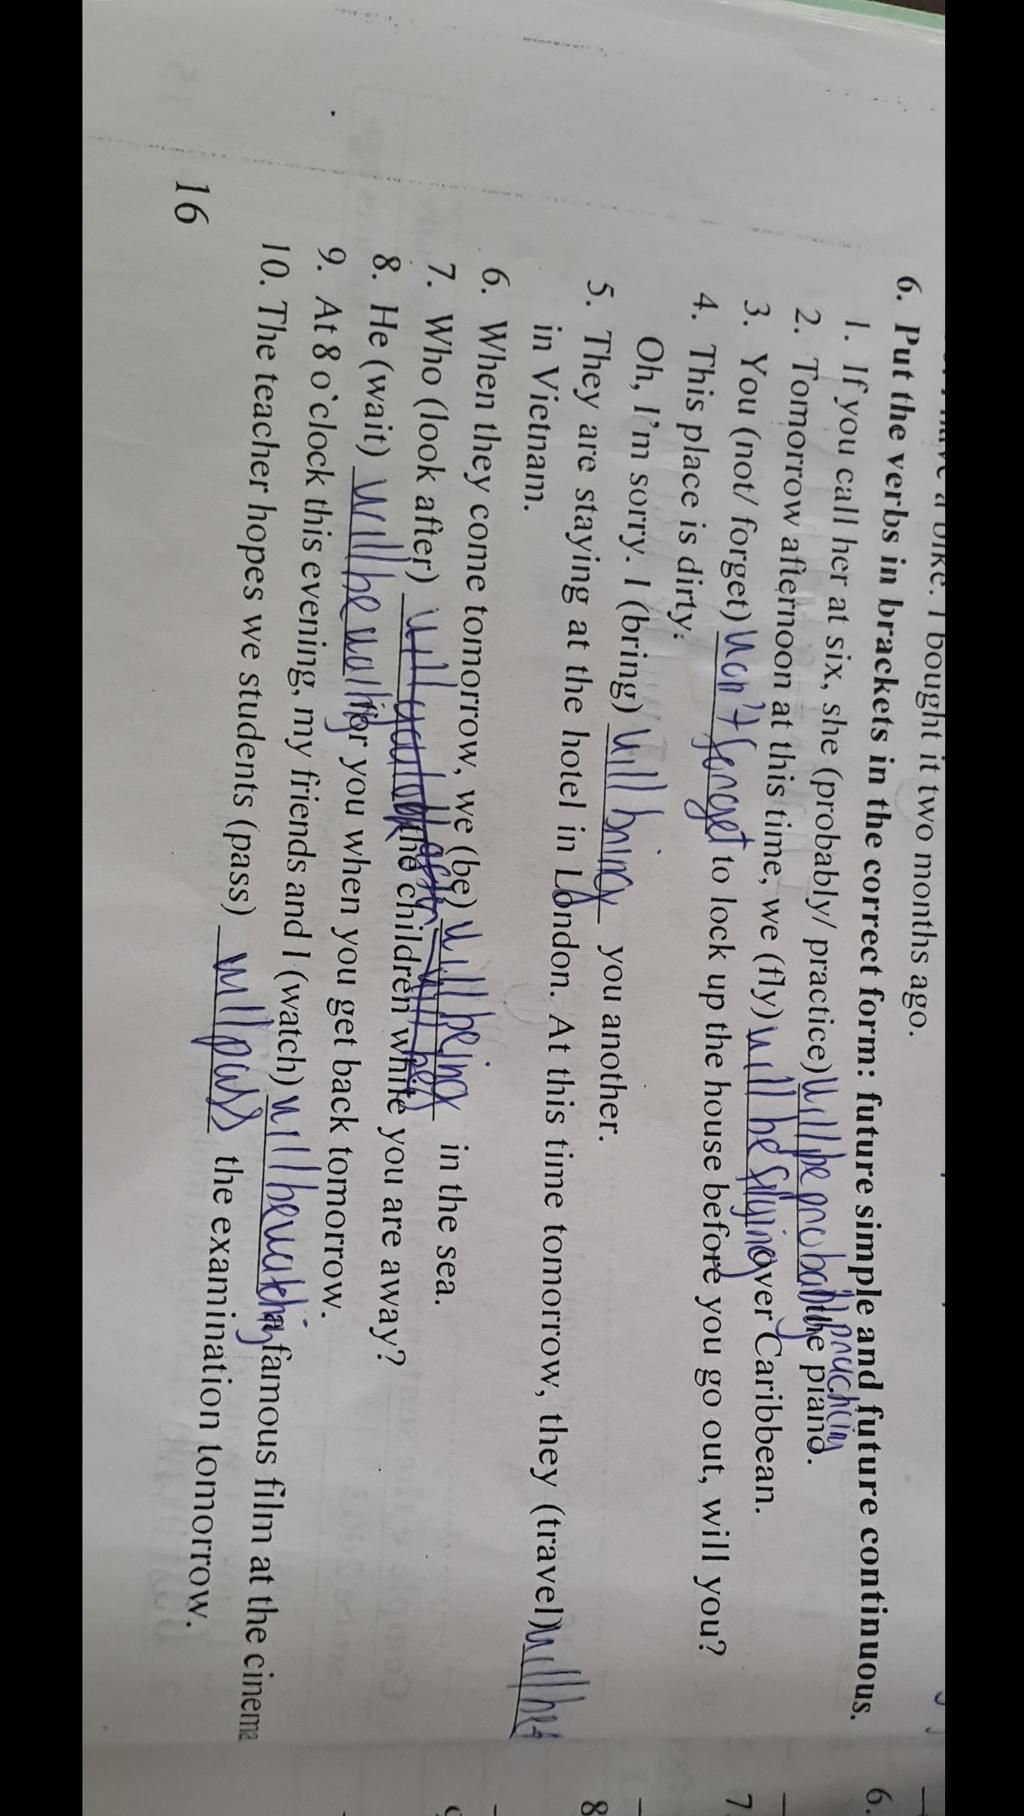 bought it two months ago.
6. Put the verbs in brackets in the correct form: future simple and future continuous.
1. If you call her at six, she (probably/ practice) will be probably practicing the piano.
2. Tomorrow afternoon at this time, we (fly) will be flying over Caribbean.
3. You (not/ forget) won't forget to lock up the house before you go out, will you?
4. This place is dirty.
Oh, I'm sorry. I (bring) will bring you another.
5. They are staying at the hotel in London. At this time tomorrow, they (travel) will be
in Vietnam.
6. When they come tomorrow, we (be) will being in the sea.
7. Who (look after) the children while you are away?
8. He (wait) will be waiting for you when you get back tomorrow.
9. At 8 o`clock this evening, my friends and I (watch) will be watching a famous film at the cinema
10. The teacher hopes we students (pass) will pass the examination tomorrow.
16
6.
7.
8